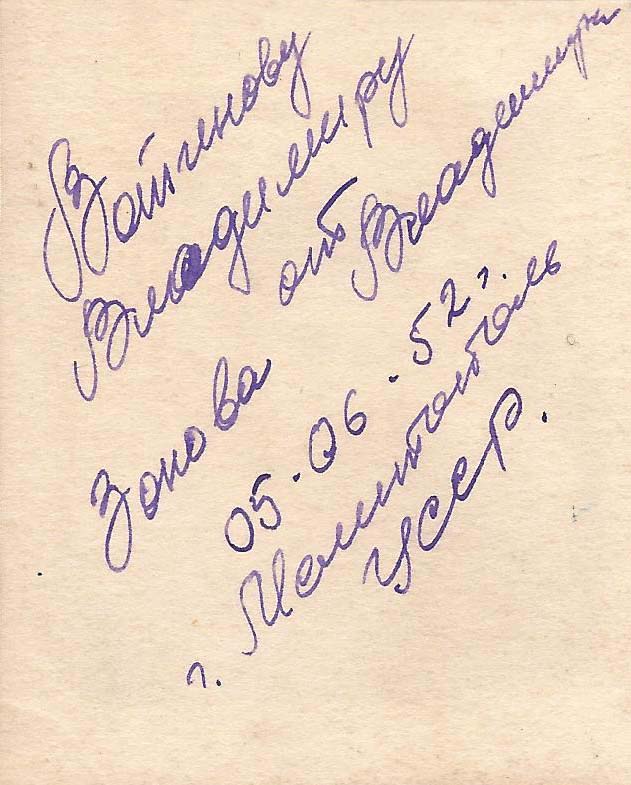 Вотинову
Владимиру
от Владимира
Зонова
05.06.52 г.
г.
УССР.